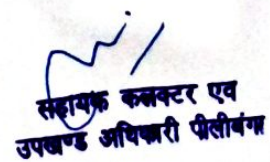 सहायक कलक्टर एव
उपखण्ड अधिकारी पीलीबंगा